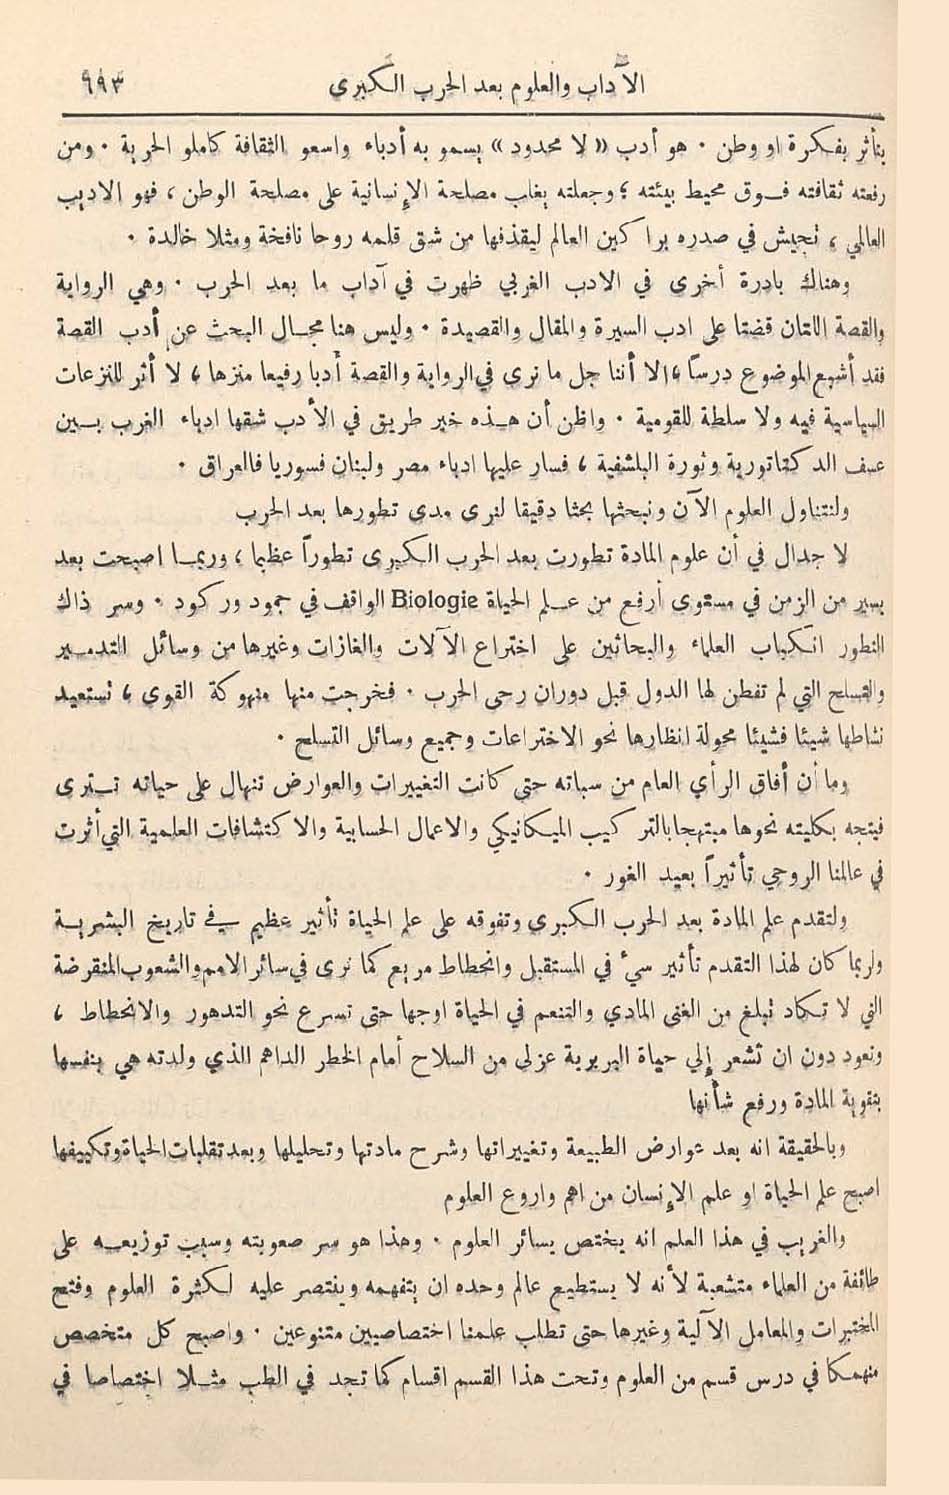 الآداب والعلوم بعد الحرب الكبرى ٩٩٣
يتأثر بفكرة او وطن . هو أدب « لا محدود » يسمو به أدباء واسعو الثقافة كاملو الحرية . ومن
رفعته ثقافته فوق محيط بيئته ؛ وجعلته يغلب مصلحة الإنسانية على مصلحة الوطن ، فهو الاديب
العالمي ، تجيش في صدره براكين العالم ليقذفها من شق قلمه روحا نافخة ومثلا خالدة .
وهناك بادرة أخرى في الادب الغربي ظهرت في آداب ما بعد الحرب . وهي الرواية
والقصة اللتان قضتا على ادب السيرة والمقال والقصيدة . وليس هنا مجال البحث عن أدب القصة
فقد أشبع الموضوع درساً ، الا أننا جل ما نرى في الرواية والقصة أدبا رفيعا منزها ، لا أثر للنزعات
السياسية فيه ولا سلطة للقومية . واظن أن هذه خير طريق في الأدب شقها ادباء الغرب بين
عسف الدكتاتورية وثورة البلشفية ، فسار عليها ادباء مصر ولبنان فسوريا فالعراق .
ولنتناول العلوم الآن ونبحثها بحثا دقيقا لنرى مدى تطورها بعد الحرب
لا جدال في أن علوم المادة تطورت بعد الحرب الكبرى تطوراً عظيما ، وربما اصبحت بعد
يسير من الزمن في مستوى أرفع من علم الحياة Biologie الواقف في جمود وركود . وسر ذاك
التطور انكباب العلماء والبحاثين على اختراع الآلات والغازات وغيرها من وسائل التدمير
والتسلح التي لم تفطن لها الدول قبل دوران رحى الحرب . فخرجت منها منهوكة القوى ، تستعيد
نشاطها شيئا فشيئا محولة انظارها نحو الاختراعات وجميع وسائل التسلح .
وما أن أفاق الرأي العام من سباته حتى كانت التغييرات والعوارض تنهال على حياته تترى
فيتجه بكليته نحوها مبتهجا بالتركيب الميكانيكي والاعمال الحسابية والاكتشافات العلمية التي أثرت
في عالمنا الروحي تأثيراً بعيد الغور .
ولتقدم علم المادة بعد الحرب الكبرى وتفوقه على علم الحياة تأثير عظيم في تاريخ البشرية
ولربما كان لهذا التقدم تأثير سيء في المستقبل وانحطاط مريع كما نرى في سائر الامم والشعوب المنقرضة
التي لا تكاد تبلغ من الغنى المادي والتنعم في الحياة اوجها حتى تسرع نحو التدهور والانحطاط ،
وتعود دون ان تشعر إلى حياة البربرية عزلى من السلاح أمام الخطر الداهم الذي ولدته هي بنفسها
بتقوية المادة ورفع شأنها
وبالحقيقة انه بعد عوارض الطبيعة وتغييراتها وشرح مادتها وتحليلها وبعد تقلبات الحياة وتكييفها
اصبح علم الحياة او علم الإنسان من اهم واروع العلوم
والغريب في هذا العلم انه يختص بسائر العلوم . وهذا هو سر صعوبته وسبب توزيعه على
طائفة من العلماء متشعبة لأنه لا يستطيع عالم وحده ان يتفهمه وينتصر عليه لكثرة العلوم وفتح
المختبرات والمعامل الآلية وغيرها حتى تطلب علمنا اختصاصيين متنوعين . واصبح كل متخصص
منهمكا في درس قسم من العلوم وتحت هذا القسم اقسام كما تجد في الطب مثلا اختصاصا في